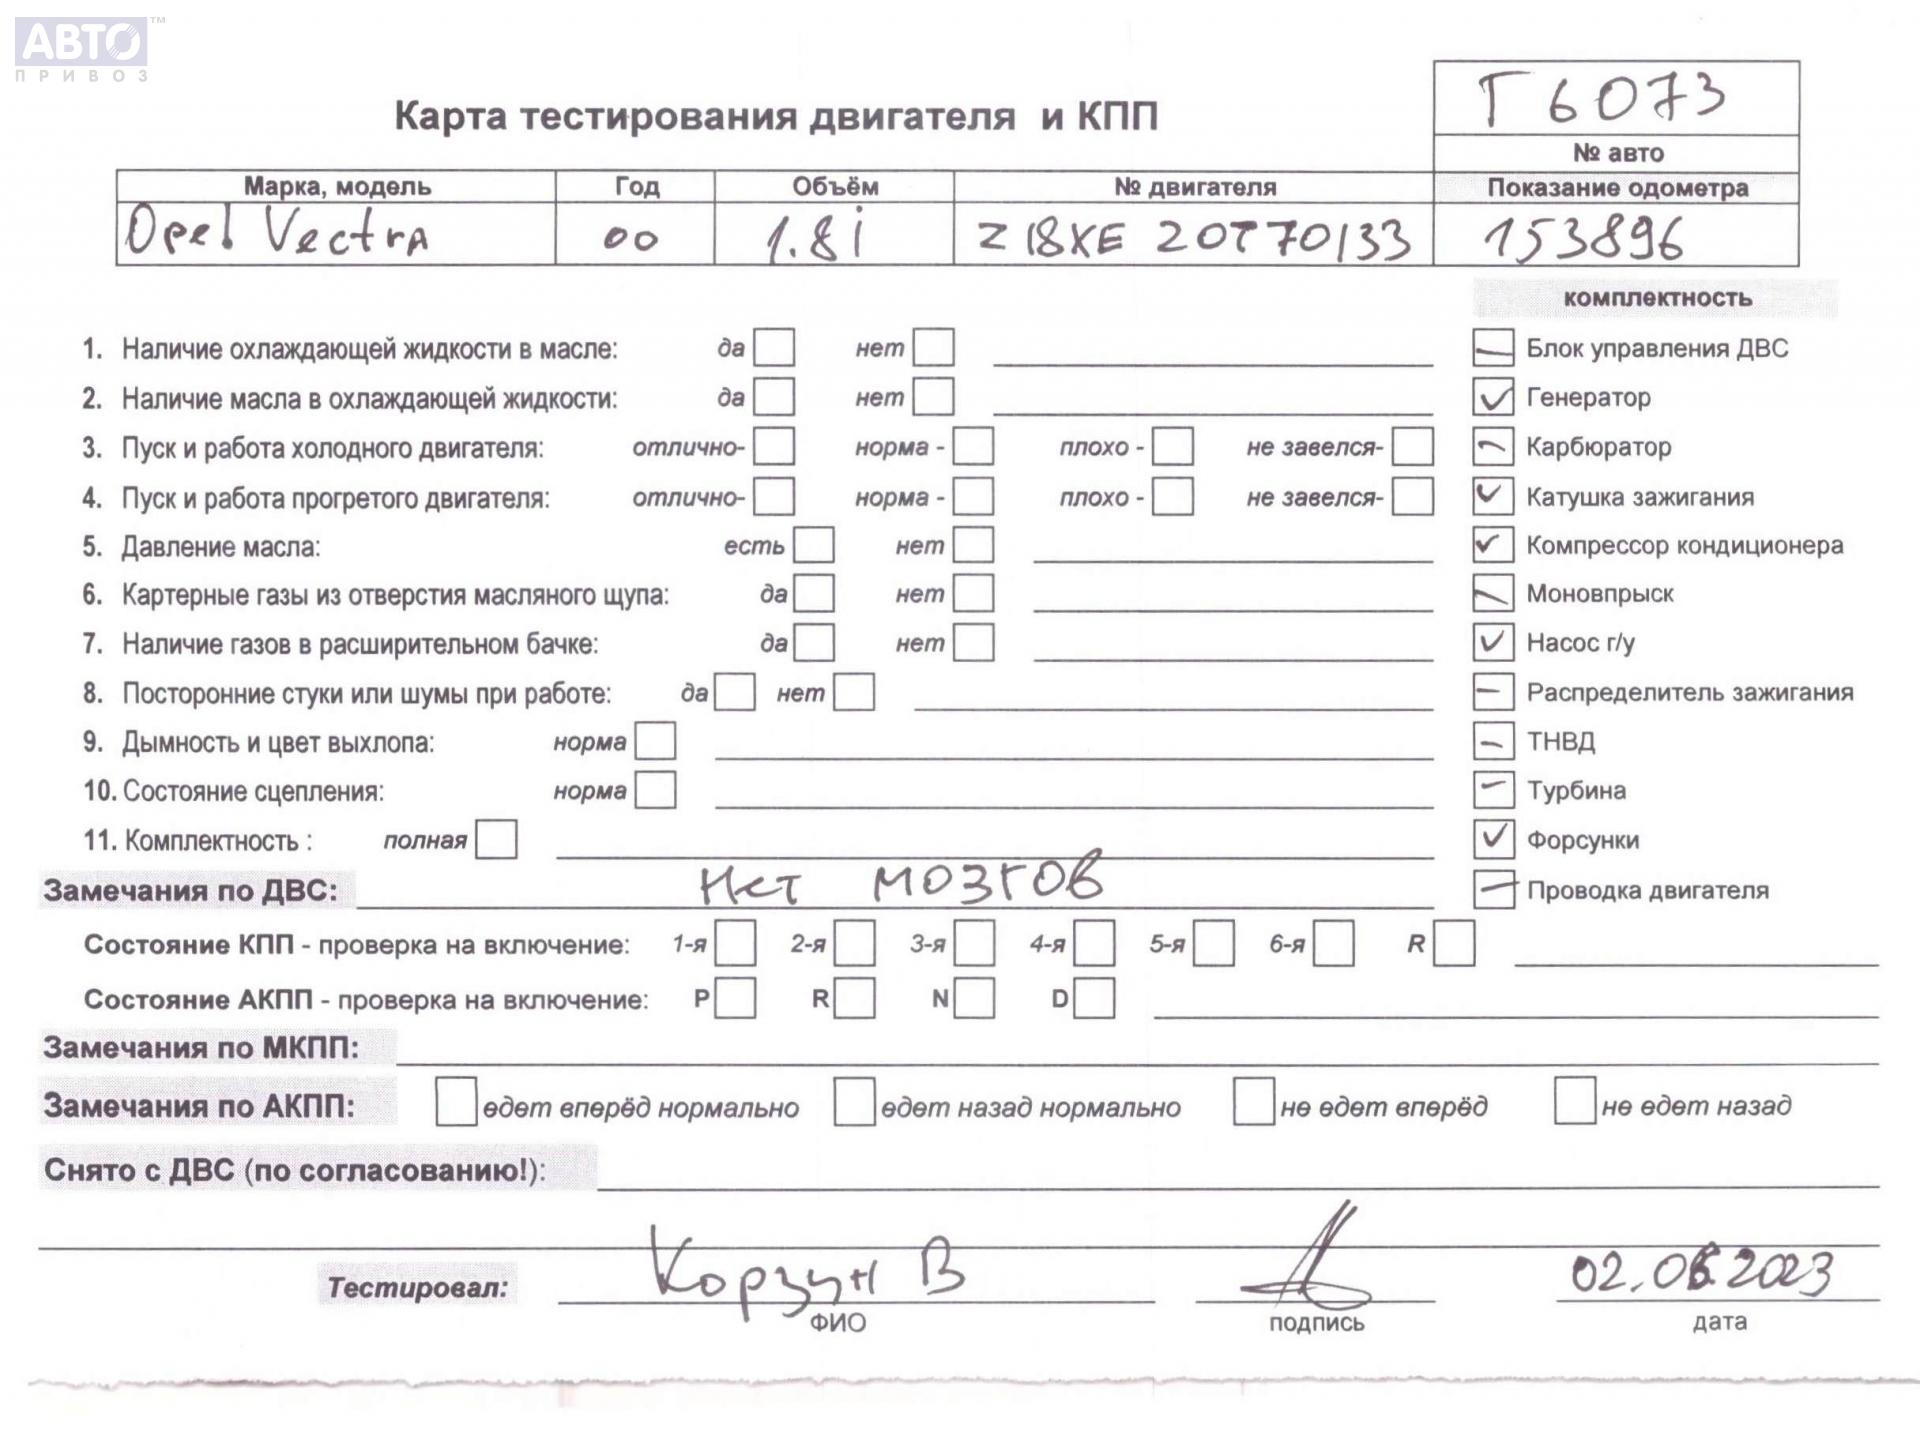 АВТО™
ПРИВОЗ
Т 6073
Карта тестирования двигателя и КПП
№ авто
Марка, модель Год Объём № двигателя Показание одометра
Opel Vectra 00 1.8i Z18XE 20T70133 153896
комплектность
1. Наличие охлаждающей жидкости в масле: да нет Блок управления ДВС
2. Наличие масла в охлаждающей жидкости: да нет Генератор
3. Пуск и работа холодного двигателя: отлично- норма - плохо - не завелся- Карбюратор
4. Пуск и работа прогретого двигателя: отлично- норма - плохо - не завелся- Катушка зажигания
5. Давление масла: есть нет Компрессор кондиционера
6. Картерные газы из отверстия масляного щупа: да нет Моновпрыск
7. Наличие газов в расширительном бачке: да нет Насос г/у
8. Посторонние стуки или шумы при работе: да нет Распределитель зажигания
9. Дымность и цвет выхлопа: норма ТНВД
10. Состояние сцепления: норма Турбина
11. Комплектность : полная Форсунки
Замечания по ДВС: Нет мозгов Проводка двигателя
Состояние КПП - проверка на включение: 1-я 2-я 3-я 4-я 5-я 6-я R
Состояние АКПП - проверка на включение: P R N D
Замечания по МКПП:
Замечания по АКПП: едет вперёд нормально едет назад нормально не едет вперёд не едет назад
Снято с ДВС (по согласованию!):
Тестировал: Корзун В 02.06.2023
ФИО подпись дата